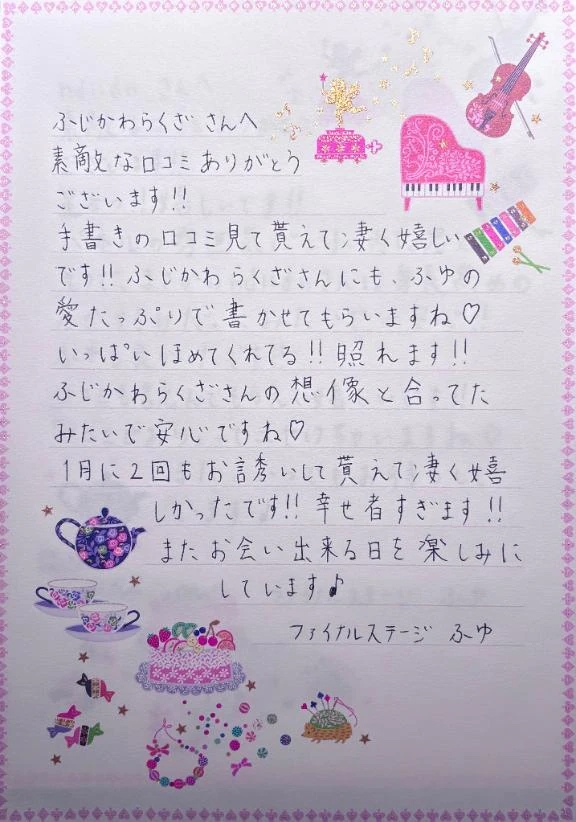 ふじかわらくざ さんへ
素敵な口コミありがとう
ございます!!
手書きの口コミ見て貰えて凄く嬉しい
です!! ふじかわらくざさんにも、ふゆの
愛たっぷりで書かせてもらいますね♡
いっぱいほめてくれてる!! 照れます!!
ふじかわらくざさんの想像と合ってた
みたいで安心ですね♡
1月に2回もお誘いして貰えて凄く嬉
しかったです!! 幸せ者すぎます!!
またお会い出来る日を楽しみに
しています♪
ファイナルステージ ふゆ